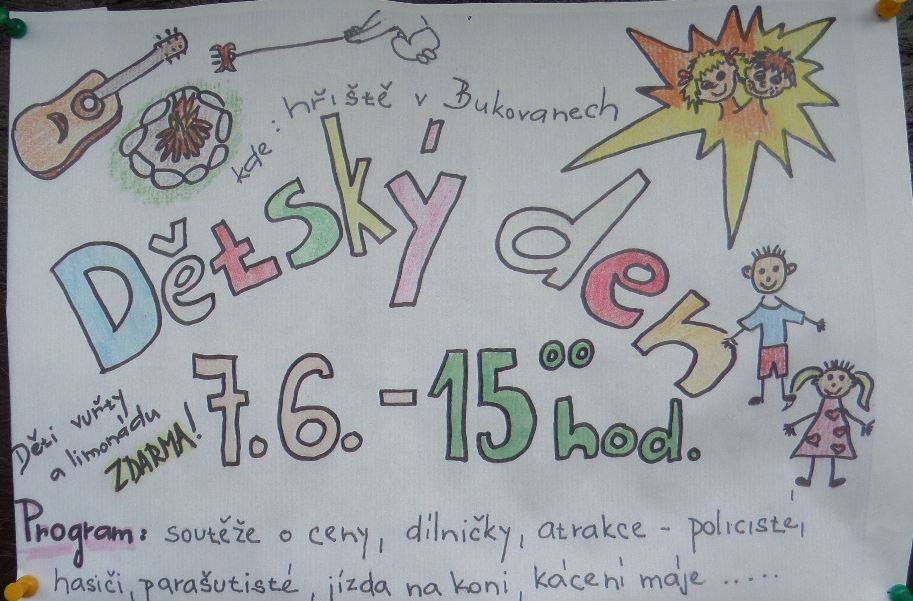 kde: hřiště v Bukovanech
Dětský den
7.6. - 15⁰⁰ hod.
Děti vuřty
a limonádu
ZDARMA!
Program: soutěže o ceny, dílničky, atrakce - policisté,
hasiči, parašutisté, jízda na koni, kácení máje .....